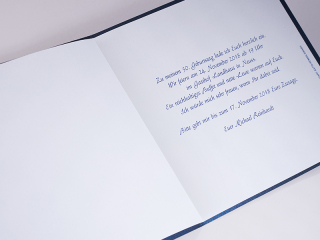 Zu meinem 50. Geburtstag lade ich Euch herzlich ein.
Wir feiern am 24. November 2018 ab 19 Uhr
im Gasthof "Landhaus" in Neuss.
Ein reichhaltiges Buffet und nette Leute warten auf Euch.
Ich würde mich sehr freuen, wenn Ihr dabei seid.
Bitte gebt mir bis zum 17. November 2018 Eure Zusage.
Euer Michael Reinhardt